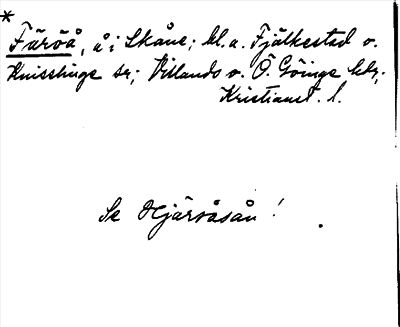 *
Färöå, å i Skåne; bl. a. Fjälkestad o.
Knisslinge sr; Villands o. Ö. Göinge hdr;
Kristianst. l.
Se Hjärsåsån!